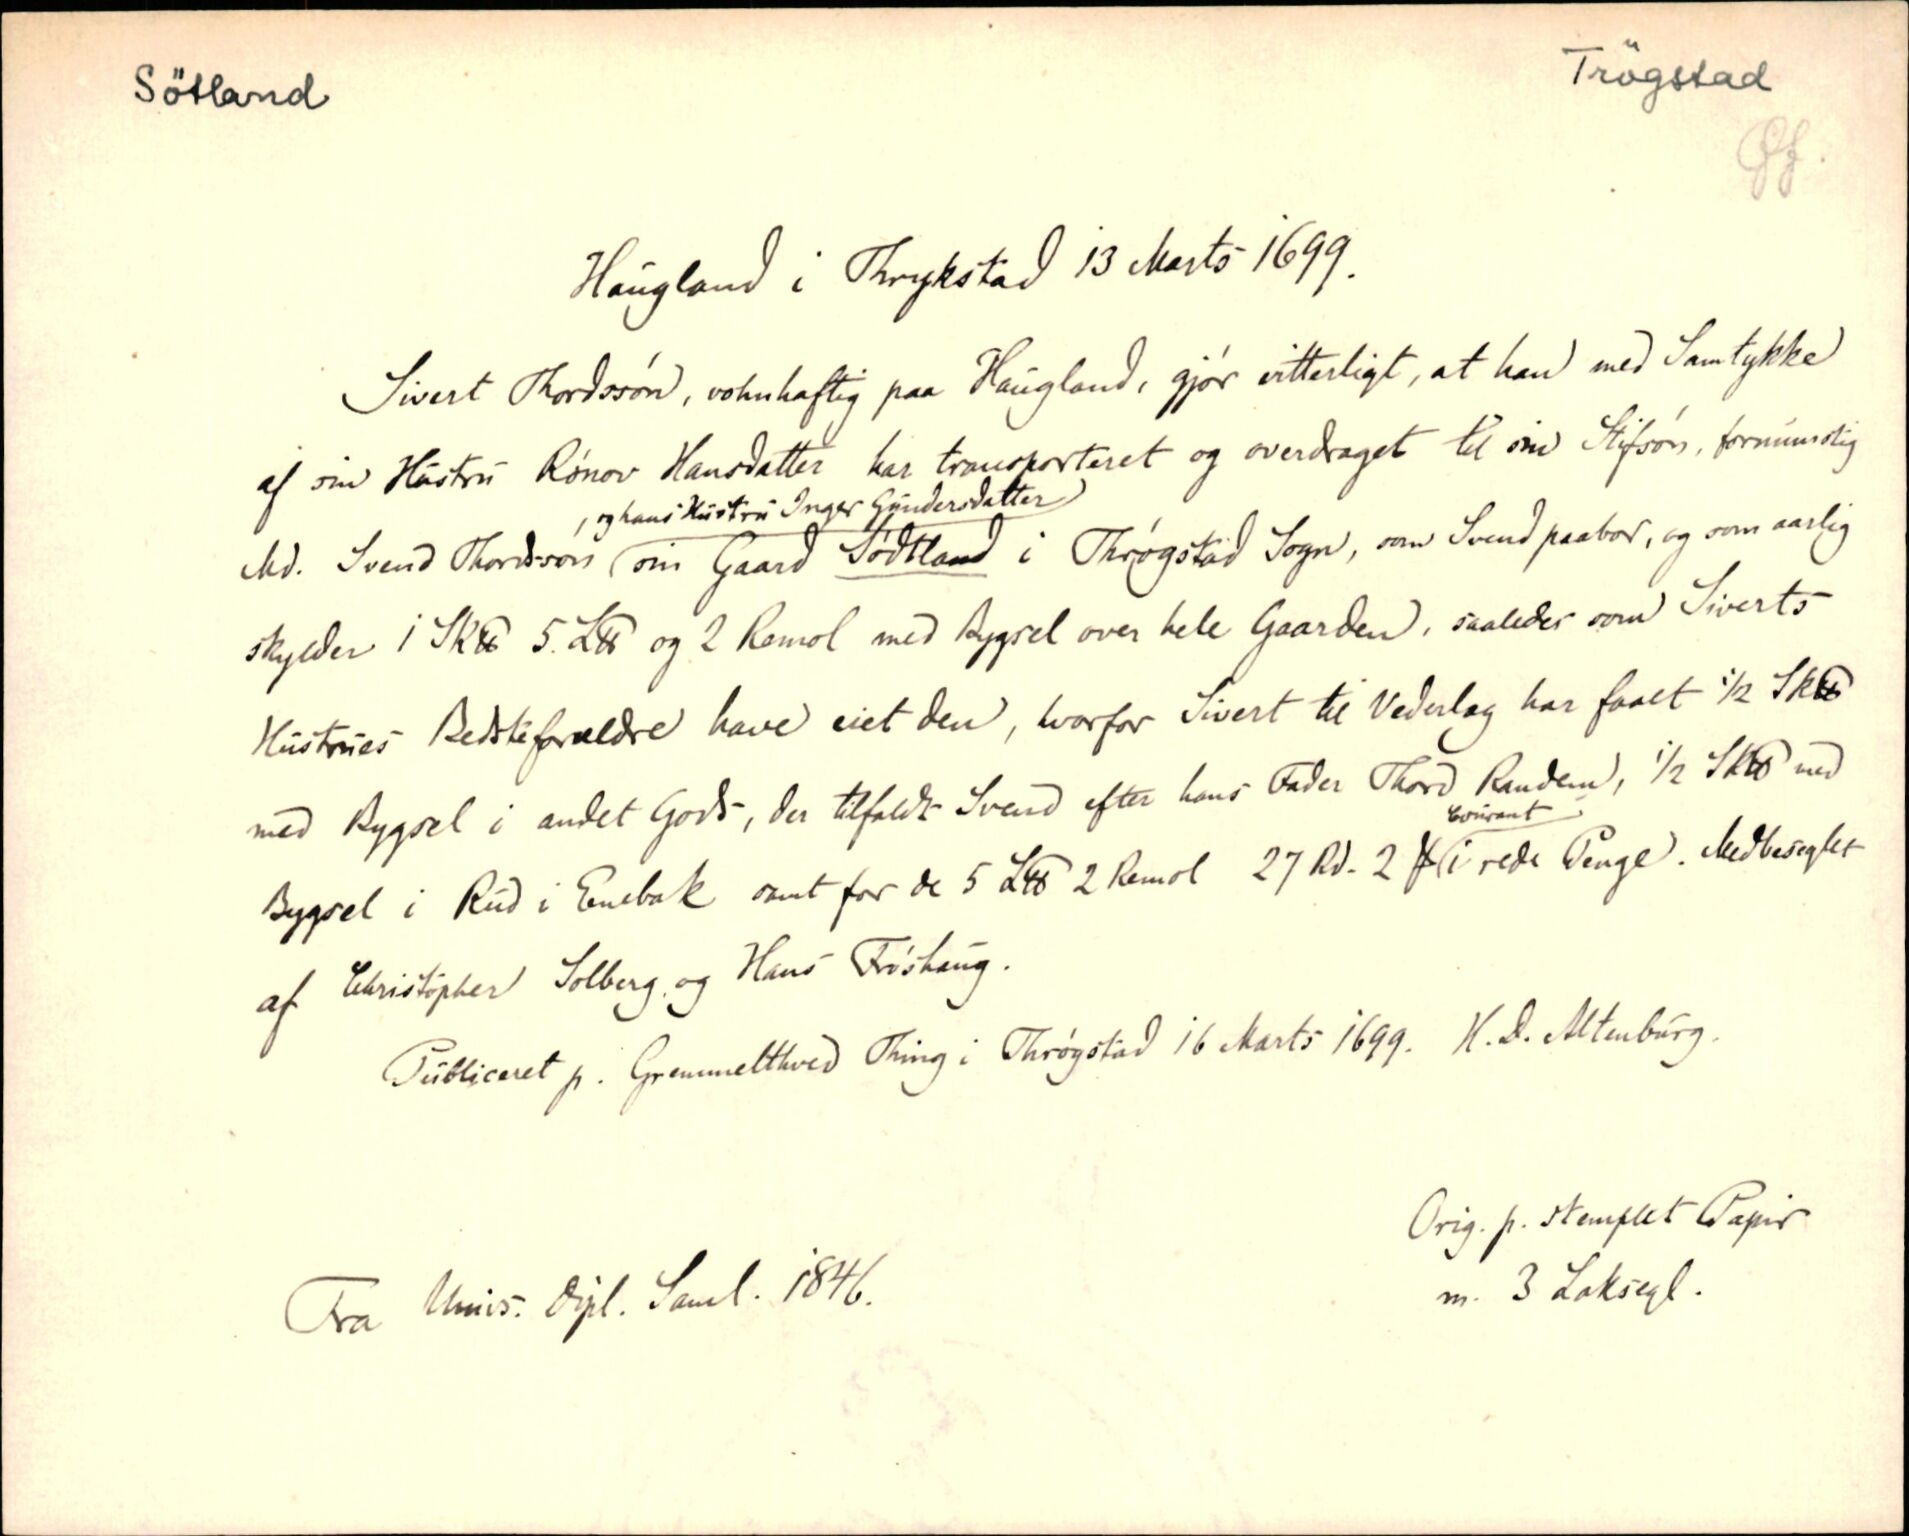 Sötland
Trögstad
Haugland i Thrykstad 13 Marts 1699.
Sivert Thordssøn, vohnhaftig paa Haugland, gjør vitterligt, at han med Samtykke
af sin Hustru Rønov Hansdatter har transporteret og overdraget til sin Stifsøn, fornumstig
, og hans Hustru Inger Gundersdatter
Md. Svend Thordssøn sin Gaard Sødtland i Thrøgstad Sogn, som Svend paabor, og som aarlig
skylder 1 Sk℔ 5. L℔ og 2 Remol med Bygsel over hele Gaarden, saaledes som Siverts
Hustrues Bedsteforældre have eiet den, hvorfor Sivert til Vederlag har faaet 1/2 Sk℔
med Bygsel i andet Gods, der tilfaldt Svend efter hans Fader Thord Randem, 1/2 Sk℔ med
Courant
Bygsel i Rud i Enebak samt for de 5 L℔ 2 Remol 27 Rd. 2 ß i rede Penge. Medbeseglet
af Christopher Solberg og Hans Frøshaug.
Publiceret p. Gremmelthved Thing i Thrøgstad 16 Marts 1699. H. D. Altenburg.
Orig. p. stemplet Papir
m. 3 Laksegl.
Fra Univs. Dipl. Saml. 1846.